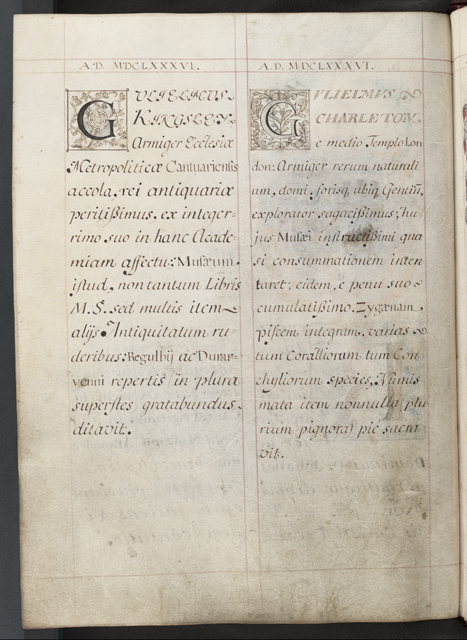 A.D. MDCLXXXVI.
GULIELMUS
KINGSLEY
Armiger Ecclesiæ
Metropoliticæ Cantuariensis
accola, rei antiquariæ
peritißimus, ex integer-
rimo suo in hanc Acade-
miam affectu: Musæum
istud, non tantum Libris
M.S. sed multis item
alijs Antiquitatum ru-
deribus: Regulbij ac Duro-
venni repertis in plura
superstes gratabundus
ditavit.
A.D. MDCLXXXVI.
GVLIELMVS
CHARLETON
e medio Templo Lon
don: Armiger rerum naturali
um, domi, forisq, ubiq Gentiũ,
explorator sagacißimus; hu
jus Musæi instructißimi qua
si consummationem inten
taret; eidem, e penu suo
cumulatißimo, Zygænam
piscem integram, varias
tum Coralliorum tum Con
chyliorum species, Numis
mata item nonnulla (plu
rium pignora) pie sacra
vit.